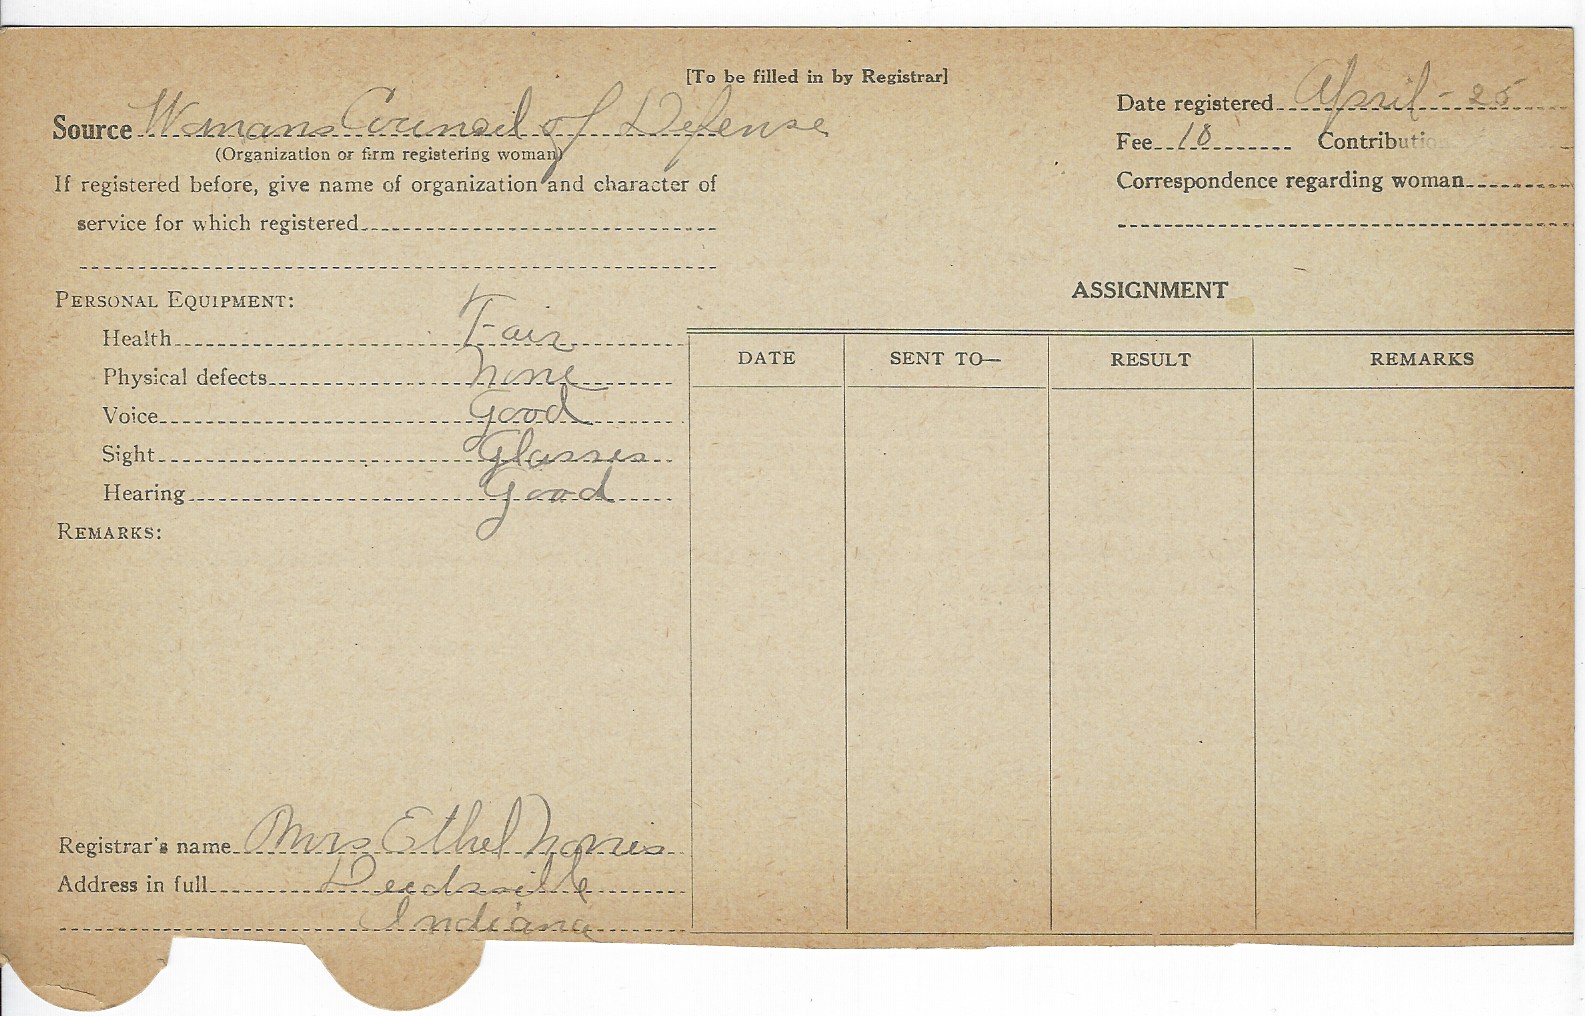 [To be filled in by Registrar]
Source Womans Council of Defense
(Organization or firm registering woman)
If registered before, give name of organization and character of
service for which registered
Date registered April - 25
Fee 18 Contributio
Correspondence regarding woman
PERSONAL EQUIPMENT:
Health Fair
Physical defects none
Voice Good
Sight Glasses
Hearing Good
REMARKS:
ASSIGNMENT
DATE SENT TO— RESULT REMARKS
Registrar's name Mrs Ethel Norris
Address in full Deedsville
Indiana